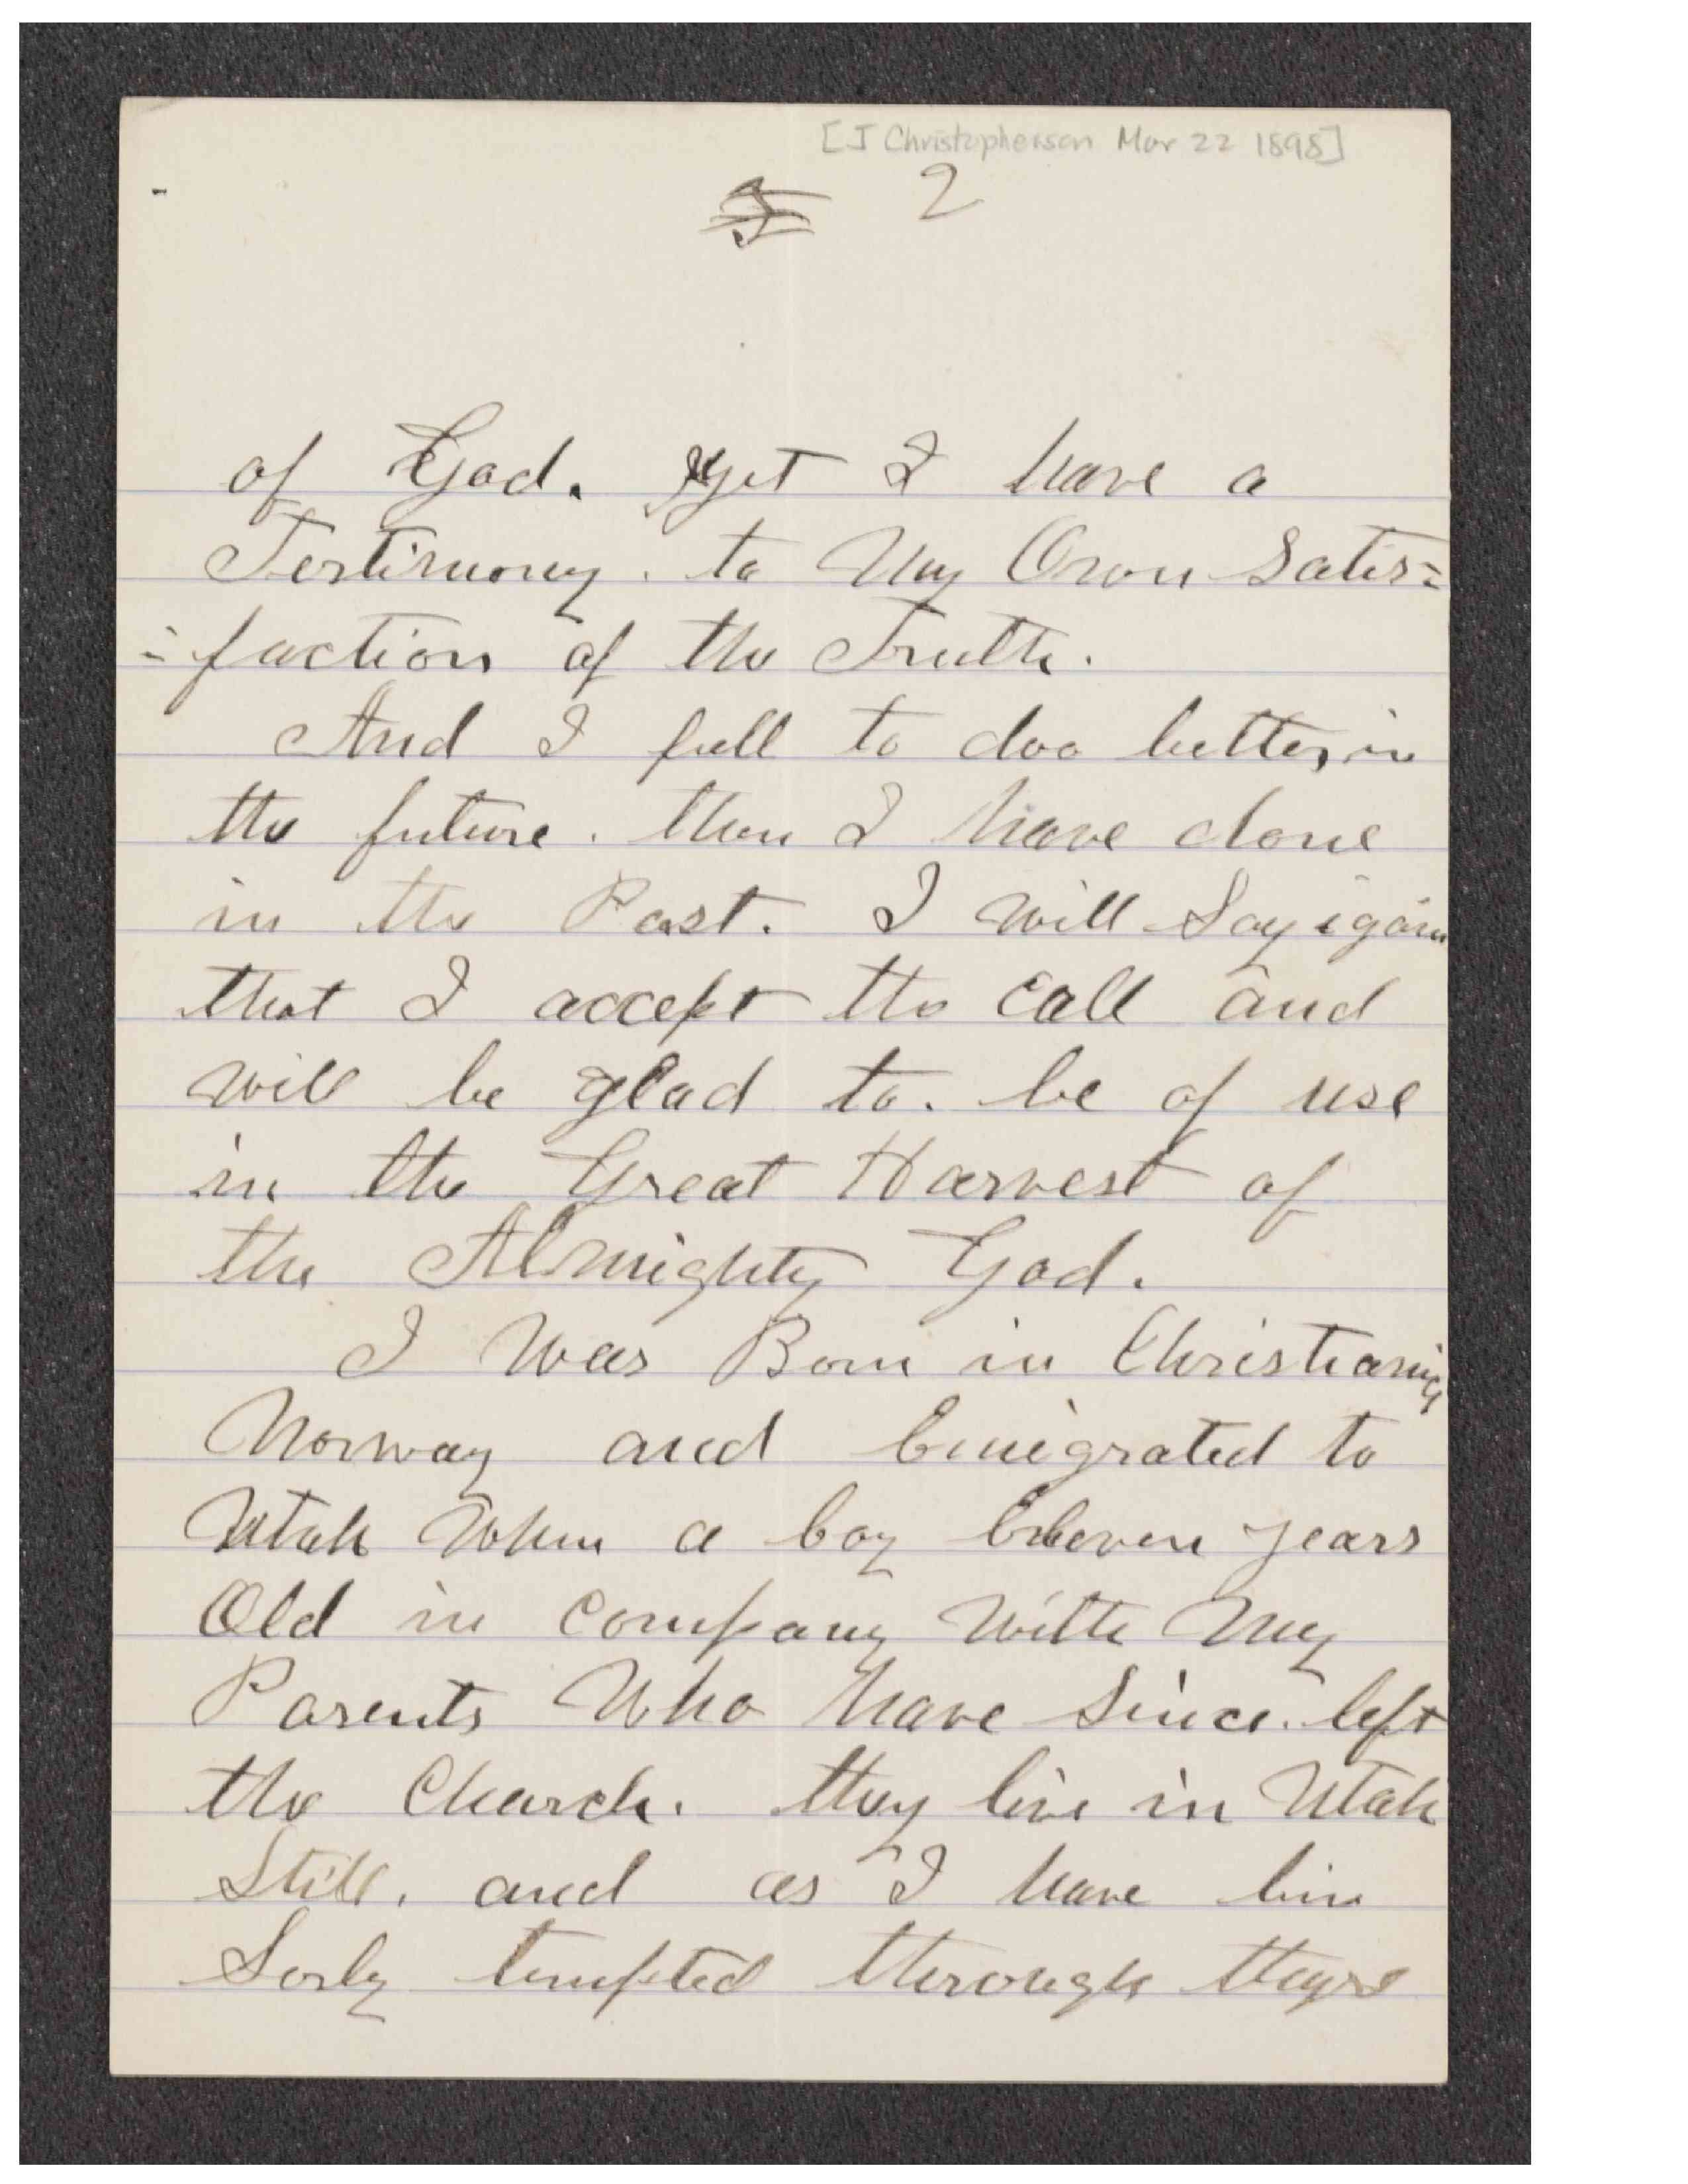 [J Christopherson Mar 22 1898]
2
of God. yet I have a
Testimony. to My Own Satis=
=faction of the Truth.
And I fell to doo better in
the future. then I have done
in the Past. I will Say igain
that I accept the Call and
will be glad to. be of use
in the Great Harvest of
the Almighty God.
I Was Born in Christiania
Norway and Emigrated to
Utah When a boy Eleven years
Old in Company With My
Parents Who have Since. left
the Church. they live in Utah
Still. and as I have bin
Sorly tempted through